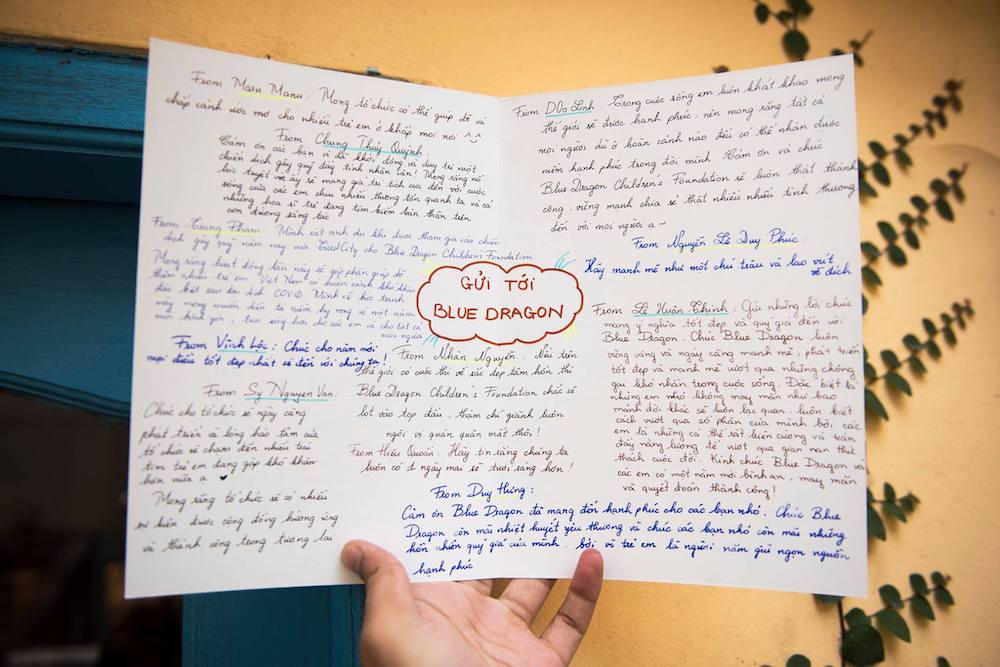 From Manu Manu : Mong tổ chức có thể giúp đỡ và
chắp cánh ước mơ cho nhiều trẻ em ở khắp mọi nơi ^^
From Chung Thúy Quỳnh :
Cảm ơn các bạn vì đã khởi động và duy trì một
chiến dịch gây quỹ đầy tính nhân văn! Mong rằng nó
bức tuyệt vời ấy sẽ mang giá trị tích cực đến với cuộc
sống của các em chịu nhiều thương tổn quanh ta và cả
những họa sĩ trẻ đang tìm kiếm bản thân trên
con đường sáng tác
From Trang Phạm : Mình rất vinh dự khi được tham gia vào chiến
dịch gây quỹ năm nay của TiredCity cho Blue Dragon Children's Foundation
Mong rằng hoạt động lần này sẽ góp phần giúp đỡ
thêm nhiều trẻ em Việt Nam có hoàn cảnh khó khăn
đặc biệt sau đại dịch COVID. Mình vẽ bức tranh
này mong muốn đem tới niềm hy vọng về một năm
mới bình yên, tươi sáng hơn cho các em và cho tất cả
mọi người
From Vĩnh Lộc : Chúc cho năm mới
mọi điều tốt đẹp nhất sẽ đến với chúng ta !
From Sy Nguyen Van :
Chúc cho tổ chức sẽ ngày càng
phát triển và lòng hảo tâm của
tổ chức sẽ chạm đến nhiều trái
tim trẻ em đang gặp khó khăn
hơn nữa ạ ♥
Mong rằng tổ chức sẽ có nhiều
sự kiện được cộng đồng hưởng ứng
và thành công trong tương lai
GỬI TỚI
BLUE DRAGON
From Nhân Nguyễn : Nếu trên
thế giới có cuộc thi về sắc đẹp tâm hồn thì
Blue Dragon Children's Foundation chắc sẽ
lọt vào top đầu, thậm chí giành luôn
ngôi vị quán quân mất thôi !
From Hiếu Quoắn : Hãy tin rằng chúng ta
luôn có 1 ngày mai sẽ tươi sáng hơn !
From Duy Hưng :
Cảm ơn Blue Dragon đã mang đến hạnh phúc cho các bạn nhỏ. Chúc Blue
Dragon còn mãi nhiệt huyết yêu thương và chúc các bạn nhỏ còn mãi những
hồn nhiên quý giá của mình, bởi vì trẻ em là người nắm giữ ngọn nguồn
hạnh phúc
From Dio Linh : Trong cuộc sống em luôn khát khao mong
thế giới sẽ được hạnh phúc, nên mong rằng tất cả
mọi người dù ở hoàn cảnh nào đều có thể nhận được
niềm hạnh phúc trong đời mình. Cảm ơn và chúc
Blue Dragon Children's Foundation sẽ luôn thật thành
công, vững mạnh chia sẻ thật nhiều nhiều tình thương
đến với mọi người ạ ~
From Nguyễn Lê Duy Phúc :
Hãy mạnh mẽ như một chú trâu và lao vút
về đích
From Lê Xuân Thịnh : Gửi những lời chúc
mang ý nghĩa tốt đẹp và quý giá đến với
Blue Dragon. Chúc Blue Dragon luôn
vững vàng và ngày càng mạnh mẽ, phát triển
tốt đẹp và mạnh mẽ vượt qua những chông
gai khó khăn trong cuộc sống. Đặc biệt là
những em nhỏ không may mắn như bao
mảnh đời khác sẽ luôn lạc quan, luôn biết
cách vượt qua số phận của mình bởi các
em là những cá thể rất kiên cường và tràn
đầy năng lượng để vượt qua gian nan thử
thách cuộc đời. Kính chúc Blue Dragon và
các em có một năm mới bình an, may mắn
và quyết đoán thành công !